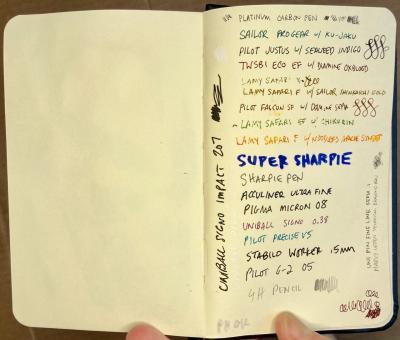 PLATINUM CARBON PEN
SAILOR PROGEAR w/ KU-JAKU
PILOT JUSTUS w/ SEAWEED INDIGO
TWSBI ECO EF w/ DIAMINE OXBLOOD
LAMY SAFARI
LAMY SAFARI F w/ SAILOR
PILOT FALCON SF w/ DIAMINE SEPIA
LAMY SAFARI EF w/ CHIKURIN
LAMY SAFARI F w/ NOODLERS APACHE SUNSET
SUPER SHARPIE
SHARPIE PEN
ACCULINER ULTRA FINE
PIGMA MICRON 08
UNIBALL SIGNO 0.38
PILOT PRECISE V5
STABILO WORKER .5MM
PILOT G-2 05
4H PENCIL
UNIBALL SIGNO IMPACT 207